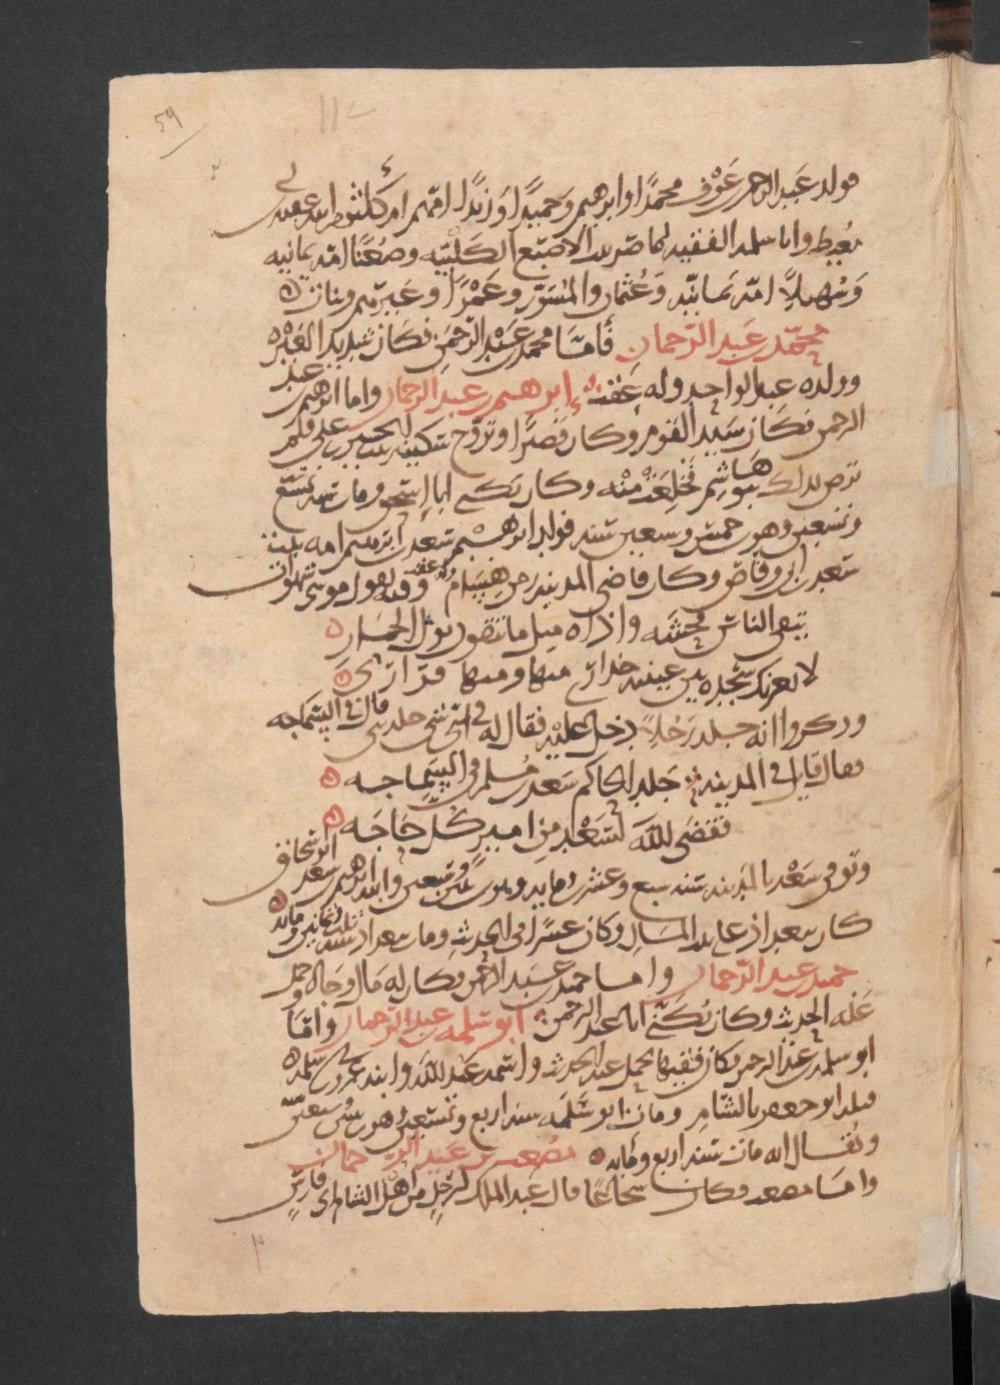 59
فولد عبد الرحمن بن عوف محمدًا وابرهيم وحميدًا وزيدًا امّهم ام كلثوم ابنه عقبه بن ابي
معيط وابا سلمه الفقيه امه تماضر بنت الاصبغ الكلبيّه ومصعبًا امّه يمانيه
وسُهيلًا امّه يمانيّه وعُثمان والمسوَر وعمرًا وغيرهم وبنات
محمّد بن عبد الرّحمان فأمّا محمد بن عبد الرّحمن فكان شديد الغيره
وولده عبد الواحد وله عقب ابرهيم بن عبد الرحمان واما ابرهيم بن عبد
الرحمن فكان سيد القوم وكان قصيرًا وتزوّج سكينه بنت الحسين بن علي فلم
ترض بذلك بنو هاشم فخلعت منه وكان يكنى ابا إسحق ومات سنه ست
وتسعين وهو بن خمس وسبعين سنه فولد ابرهيم سعد بن ابرهيم امه بنت
سعد بن ابي وقاص وكان قاضي المدينه زمن هشام وله عقب وفيه يقول موسى شهوات
يتقي الناس فحشه واذاه مثل ما يتقون بول الحمار
لا يغرنك سجده بين عينيه حذاري منها ومنها فراري
وذكروا انه جلد رجلًا دخل عليه فقال له في اي شي جلدتني قال في السّماجه
فقال قايل في المدينه جَلد الحاكم سَعد بن مسلم في السّماجه
فقضى الله لسَعْد من امير كل حَاجَه
وتوفي سَعْد بالمدينه سنه سبع وعشرين ومايه وهو بن ثلث وسبعين وابنه ابرهيم بن سعد ابو اسحاق
كان ببغداذ على بيت المال وكان عسرًا في الحديث ومات ببغداذ سنه ثلث وثمانين ومايه
حميد بن عبد الرّحمان وامّا حميد بن عبد الرحمن فكان له مال وجاه وحمل
عنه الحديث وكان يُكنّى ابا عبد الرحمن ابو سلمه بن عبد الرحمان وامّا
ابو سلمه بن عبد الرحمن فكان فقيها يحمل عنه الحديث واسمه عبد الله وابنه عمر بن ابي سلمه
قتله ابو جعفر بالشام ومات ابو سَلَمه سنه اربع وتسعين وهو بن وسبعين سنه
ويُقال انه مات سنه اربع ومايه مُصعب بن عبد الرّحمان
وامّا مصعب فكان شجاعًا قال عبد الملك لرجُلٍ من اهل الشام اي فارس